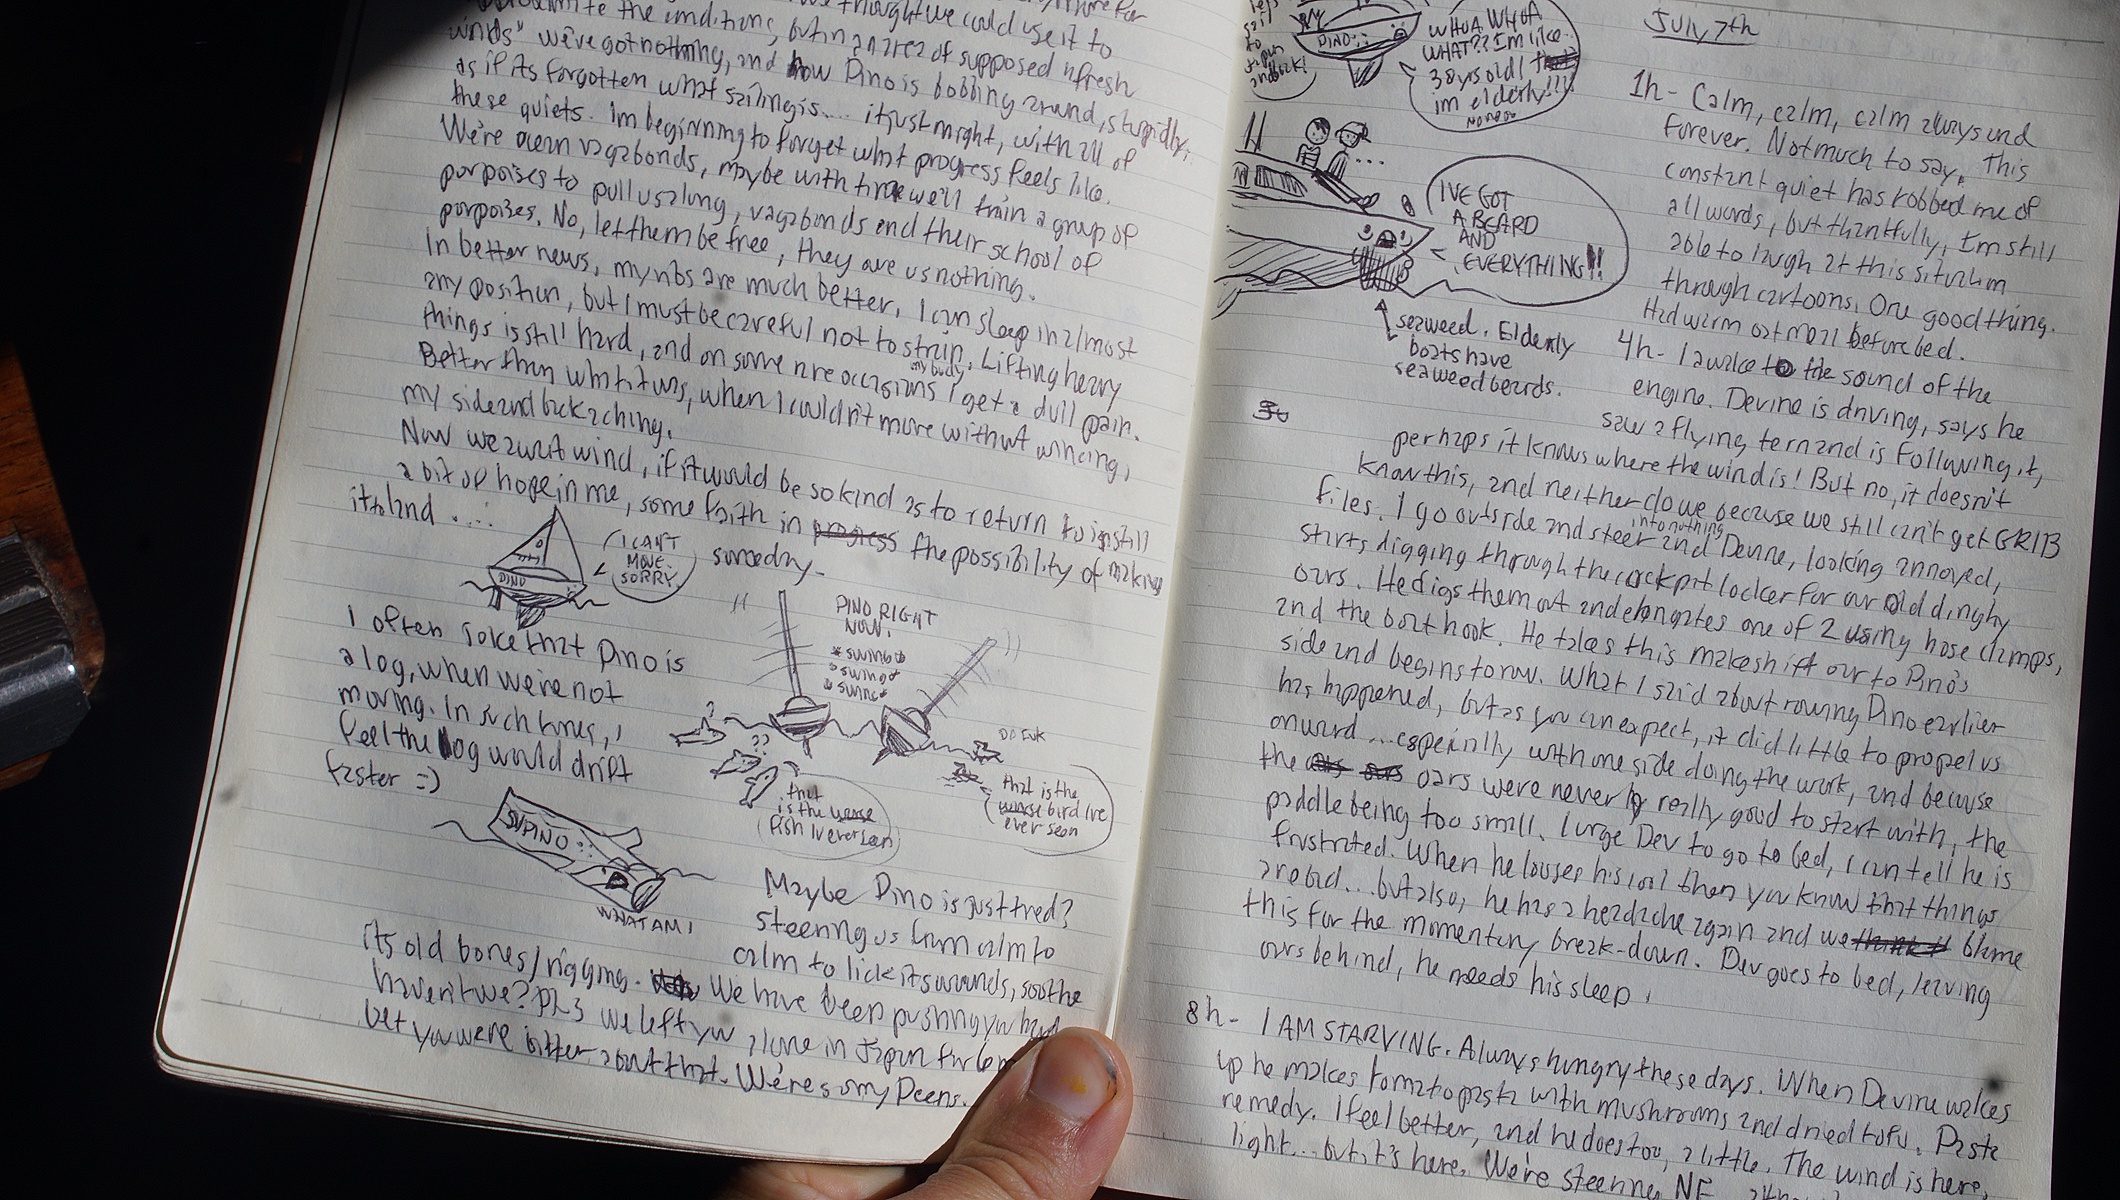 we thought we could use it to
the conditions, but in 2 areas of supposed "fresh
winds" we've got nothing, and now Pino is bobbing around, stupidly,
as if its forgotten what sailing is.... it just might, with all of
these quiets. Im beginning to forget what progress feels like.
We're ocean vagabonds, maybe with time we'll train a group of
porpoises to pull us along, vagabonds and their school of
porpoises. No, let them be free, they are us nothing.
In better news, my ribs are much better, I can sleep in almost
any position, but I must be careful not to strain. Lifting heavy
things is still hard, and on some rare occasions my body I get a dull pain.
Better than what it was, when I couldn't move without wincing,
my side and back aching.
Now we await wind, if it would be so kind as to return to instill
a bit of hope in me, some faith in progress the possibility of making
it to land ....
someday.
PINO
I CAN'T
MOVE.
SORRY
PINO RIGHT
NOW.
*swing*
*swing*
*swing*
I often joke that Pino is
a log, when we're not
moving. In such times, I
feel the log would drift
faster =)
?
??
that
is the worse
fish Ive ever seen
that is the
worse bird I've
ever seen
SUPINO
WHAT AM I
Maybe Pino is just tired?
steering us from calm to
calm to lick its wounds, soothe
its old bones/rigging. We have been pushing you hard
haven't we? Pls we left you alone in Japan for 6
bet you were bitter about that. We're so my Peens.
lets
sail
to
Japan
and back!
PINO
WHOA WHOA
WHAT?? I'm like
38 yrs old! that
im elderly!!!!
...
I'VE GOT
A BEARD
AND
EVERYTHING!!
seaweed. Elderly
boats have
seaweed beards.
JULY 7th
1h- Calm, calm, calm always and
forever. Not much to say. This
constant quiet has robbed me of
all words, but thankfully, Im still
able to laugh at this situation
through cartoons. One good thing.
Had warm oatmeal before bed.
4h- I awake to the sound of the
engine. Devine is driving, says he
saw a flying tern and is following it,
perhaps it knows where the wind is! But no, it doesn't
know this, and neither do we because we still can't get GRIB
files. I go outside and steer into nothing and Devine, looking annoyed,
starts digging through the cockpit locker for our old dinghy
oars. He digs them out and elongates one of 2 using hose clamps,
and the boat hook. He takes this makeshift oar to Pino's
side and begins to row. What I said about rowing Pino earlier
has happened, but as you can expect, it did little to propel us
onward ...especially with one side doing the work, and because
the oars oars oars were never really good to start with, the
paddle being too small. I urge Dev to go to bed, I can tell he is
frustrated. When he looses his cool then you know that things
are bad... but also, he has a headache again and we think it blame
this for the momentary break-down. Dev goes to bed, leaving
oars behind, he needs his sleep.
8h- I AM STARVING. Always hungry these days. When Devine wakes
up he makes tomato pasta with mushrooms and dried tofu. Pasta
remedy. I feel better, and he does too, a little. The wind is here,
light... but it's here. We're steering NE